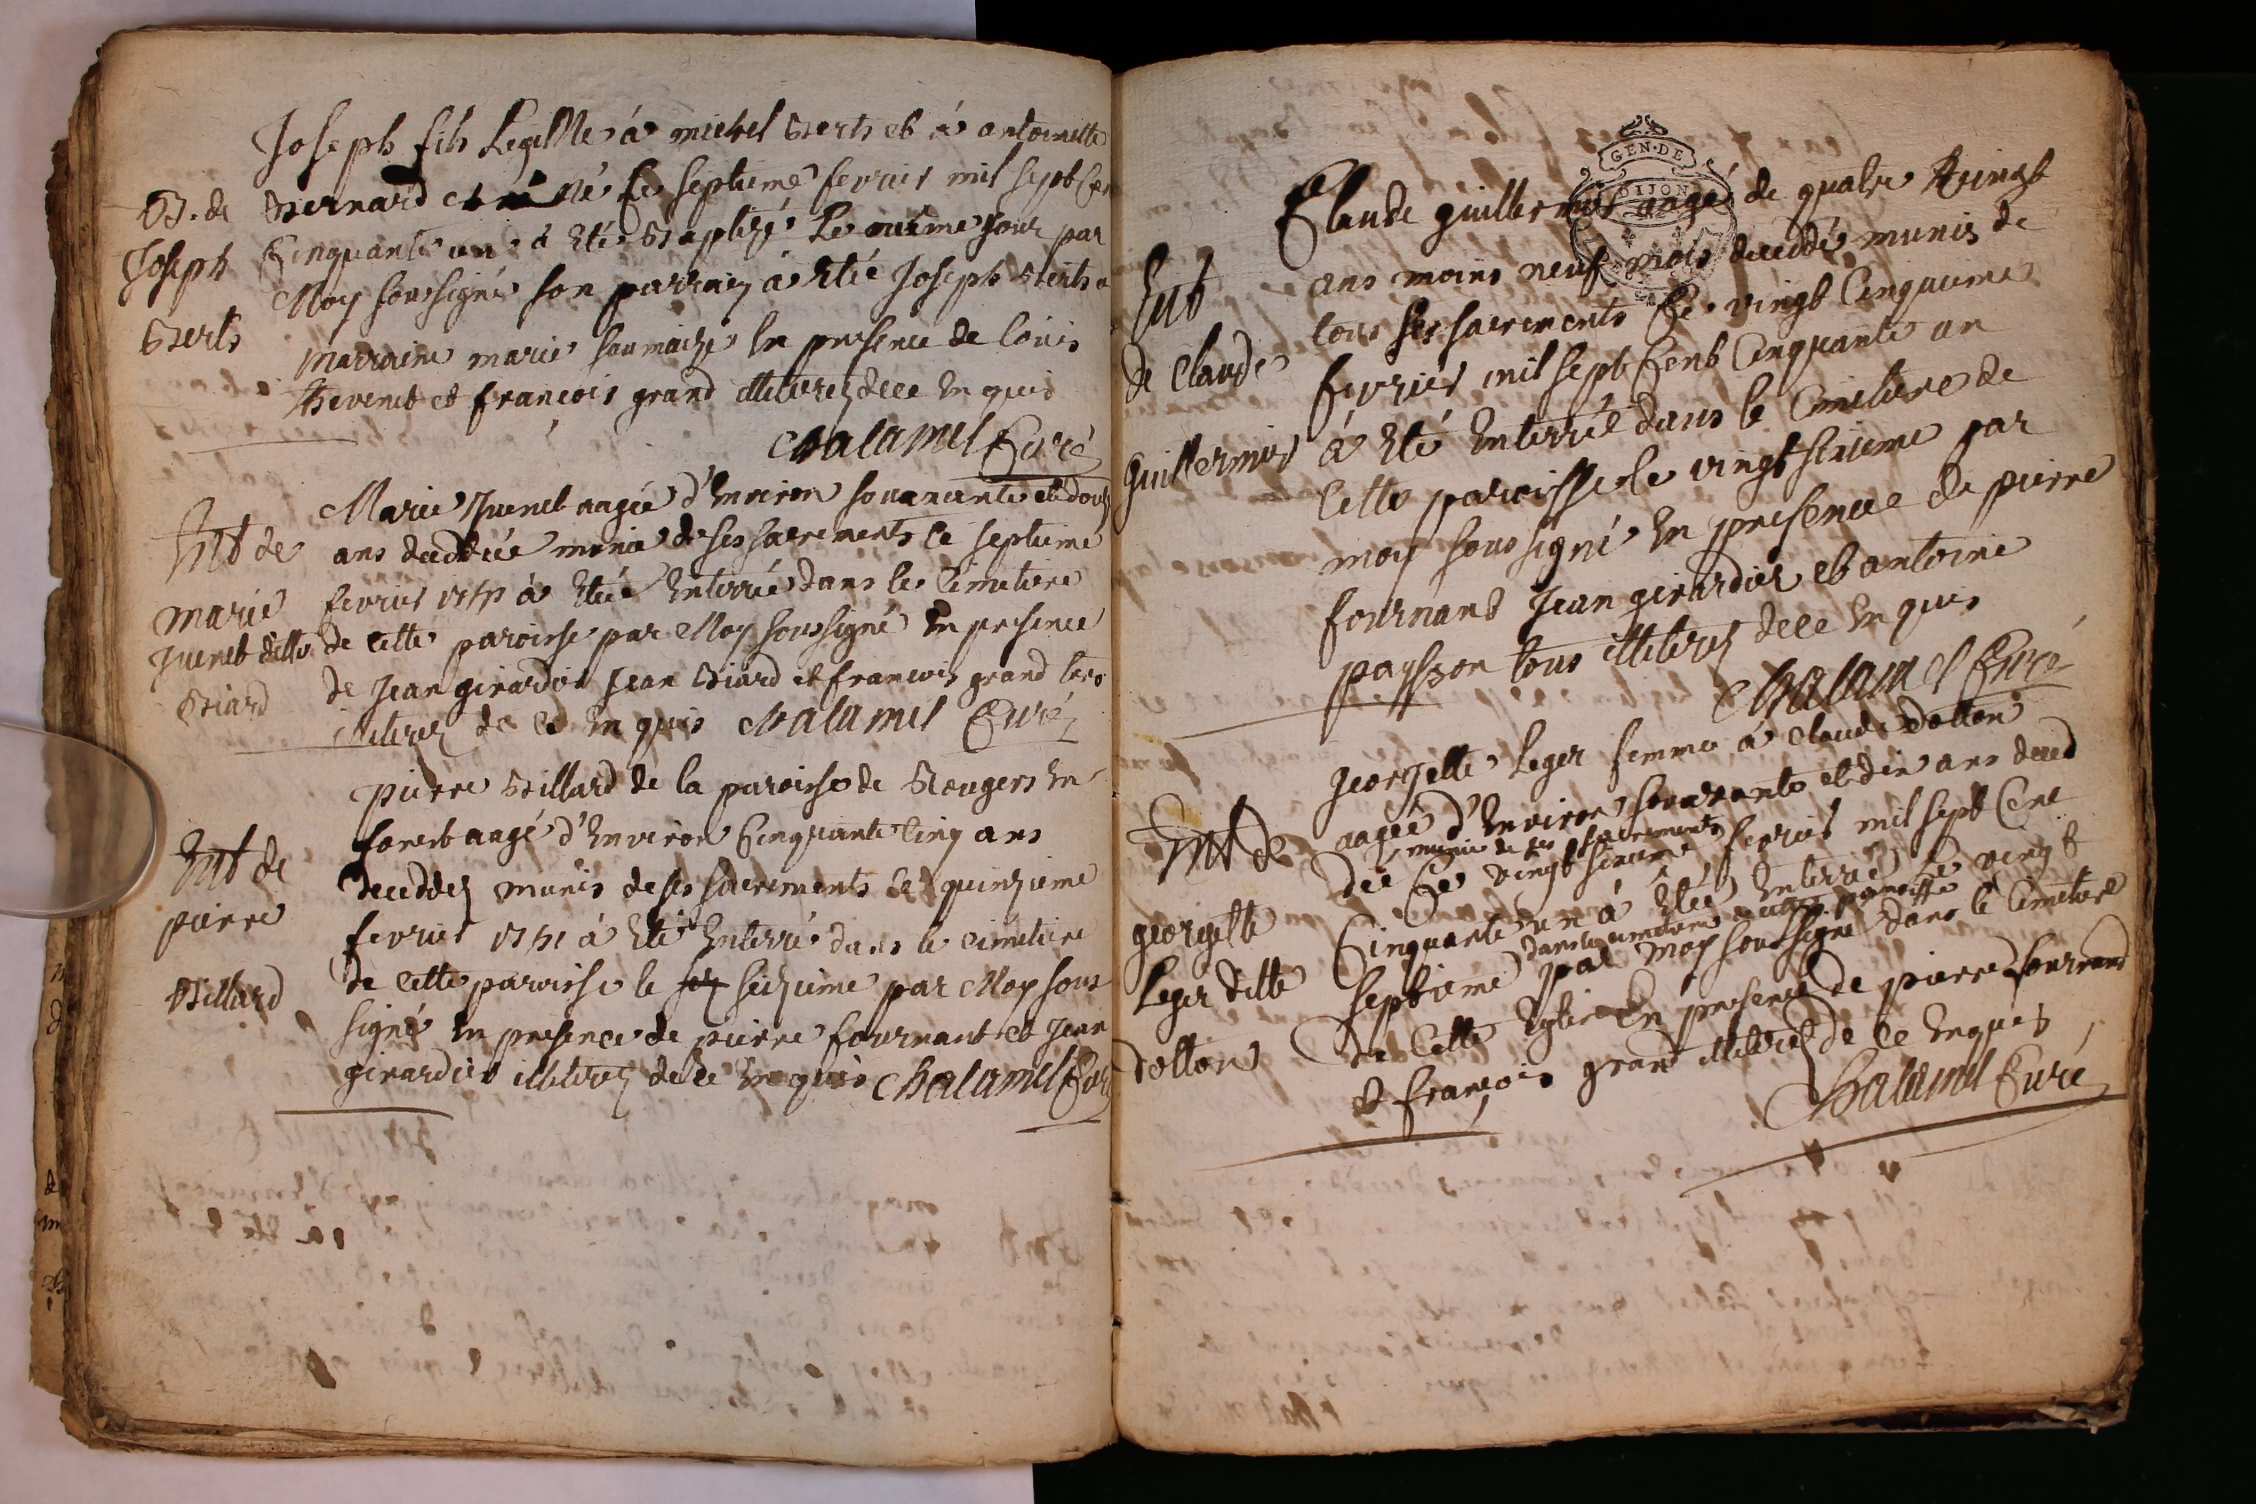 Joseph fils Legitime à michel Berts et à antoinette
B. de
Joseph
Berts
Bernard et né Le septieme fevrier mil sept Cent
Cinquante un à Eté Baptizé Le même jour par
Moy soussigné son parrain à Eté Joseph Berts
Marraine marie En presence de louis
thevenet et francois grand illitrez de ce Enquis
Chalamel Curé
Int de
marie
Juenet ditte
Biard
Marie Juenet aagée d'Environ soixante et douze
ans deceddée munie de ses sacrements Le septieme
fevrier 1751 à Etée Enterrée dans le Cimetiere
de cette paroisse par Moy soussigné En presence
de Jean girardin Jean Biard et francois grand
illitrez de ce Enquis Chalamel Curé
Int de
pierre
Billard
pierre Billard de la paroisse de En
forest aagé d'Environ Cinquante Cinq ans
deceddez munis de ses sacrements Le quinzieme
fevrier 1751 à Eté Enterré dans le cimetiere
de cette paroisse le seizieme par Moy sous
signé En presence de pierre fournant et Jean
girardin illitrez de ce Enquis Chalamel Curé
GEN·DE
DIJON
Int
de Claude
Guillermin
Claude guillermin aagé de quatre vingt
ans moins neuf mois deceddé munis de
tous ses sacrements Le vingt Cinquieme
fevrier mil sept Cent Cinquante un
à Eté Enterré dans le Cimetiere de
Cette paroisse le vingt sixieme par
moy soussigné En presence de pierre
fournant Jean girardin et antoine
tous illitrez de ce Enquis
Chalamel Curé
Int de
georgette
Leger ditte
dotton
georgette Leger femme à claude dotton
aagée d'Environ soixante et dix ans deced
munie de ses sacrements
dée Le vingt sixieme fevrier mil sept Cent
Cinquante un à Etée Enterré le vingt
dans le cimetiere de cette paroisse
septieme par moy soussigné dans le Cimetiere
de Cette Eglise En presence de pierre fournand
et françois grand illitrez de ce Enquis
Chalamel Curé